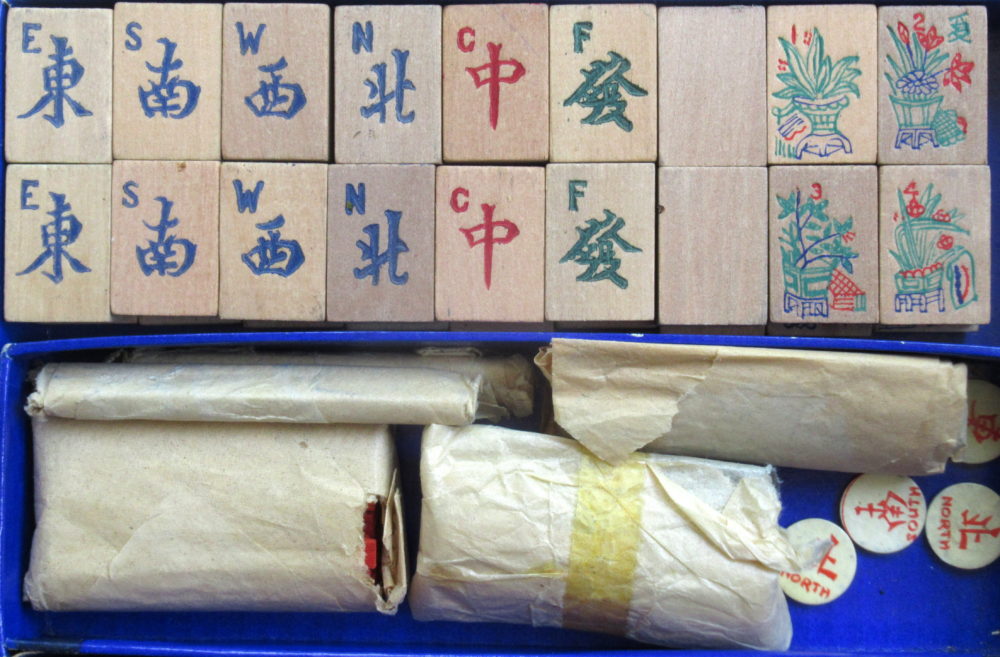 E S W N C F 1 2
東 南 西 北 中 發
E S W N C F 3 4
東 南 西 北 中 發
南 SOUTH
北 NORTH
NORTH